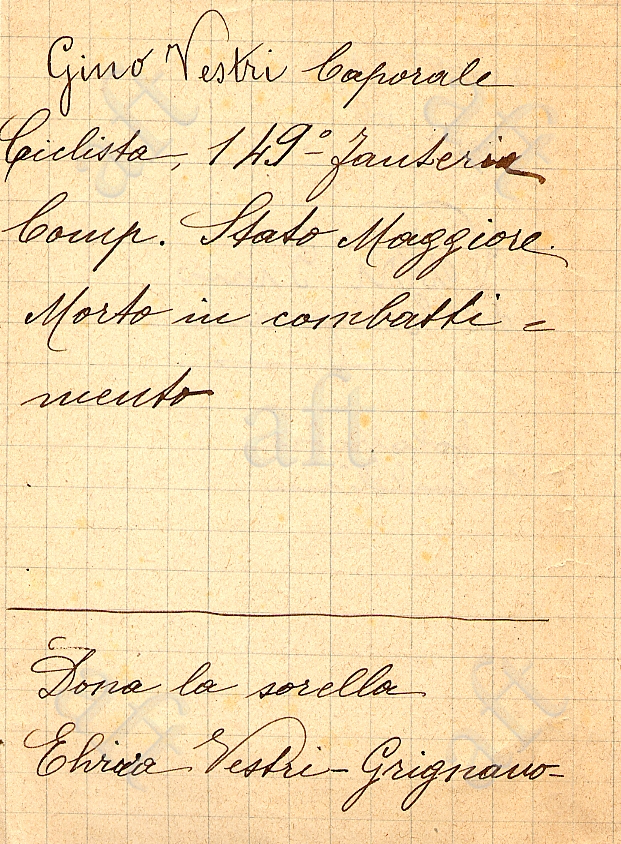 Gino Vestri Caporale
Ciclista, 149º Fanteria
Comp. Stato Maggiore.
Morto in combatti =
mento
aft
Dona la sorella
Vestri - Grignano -